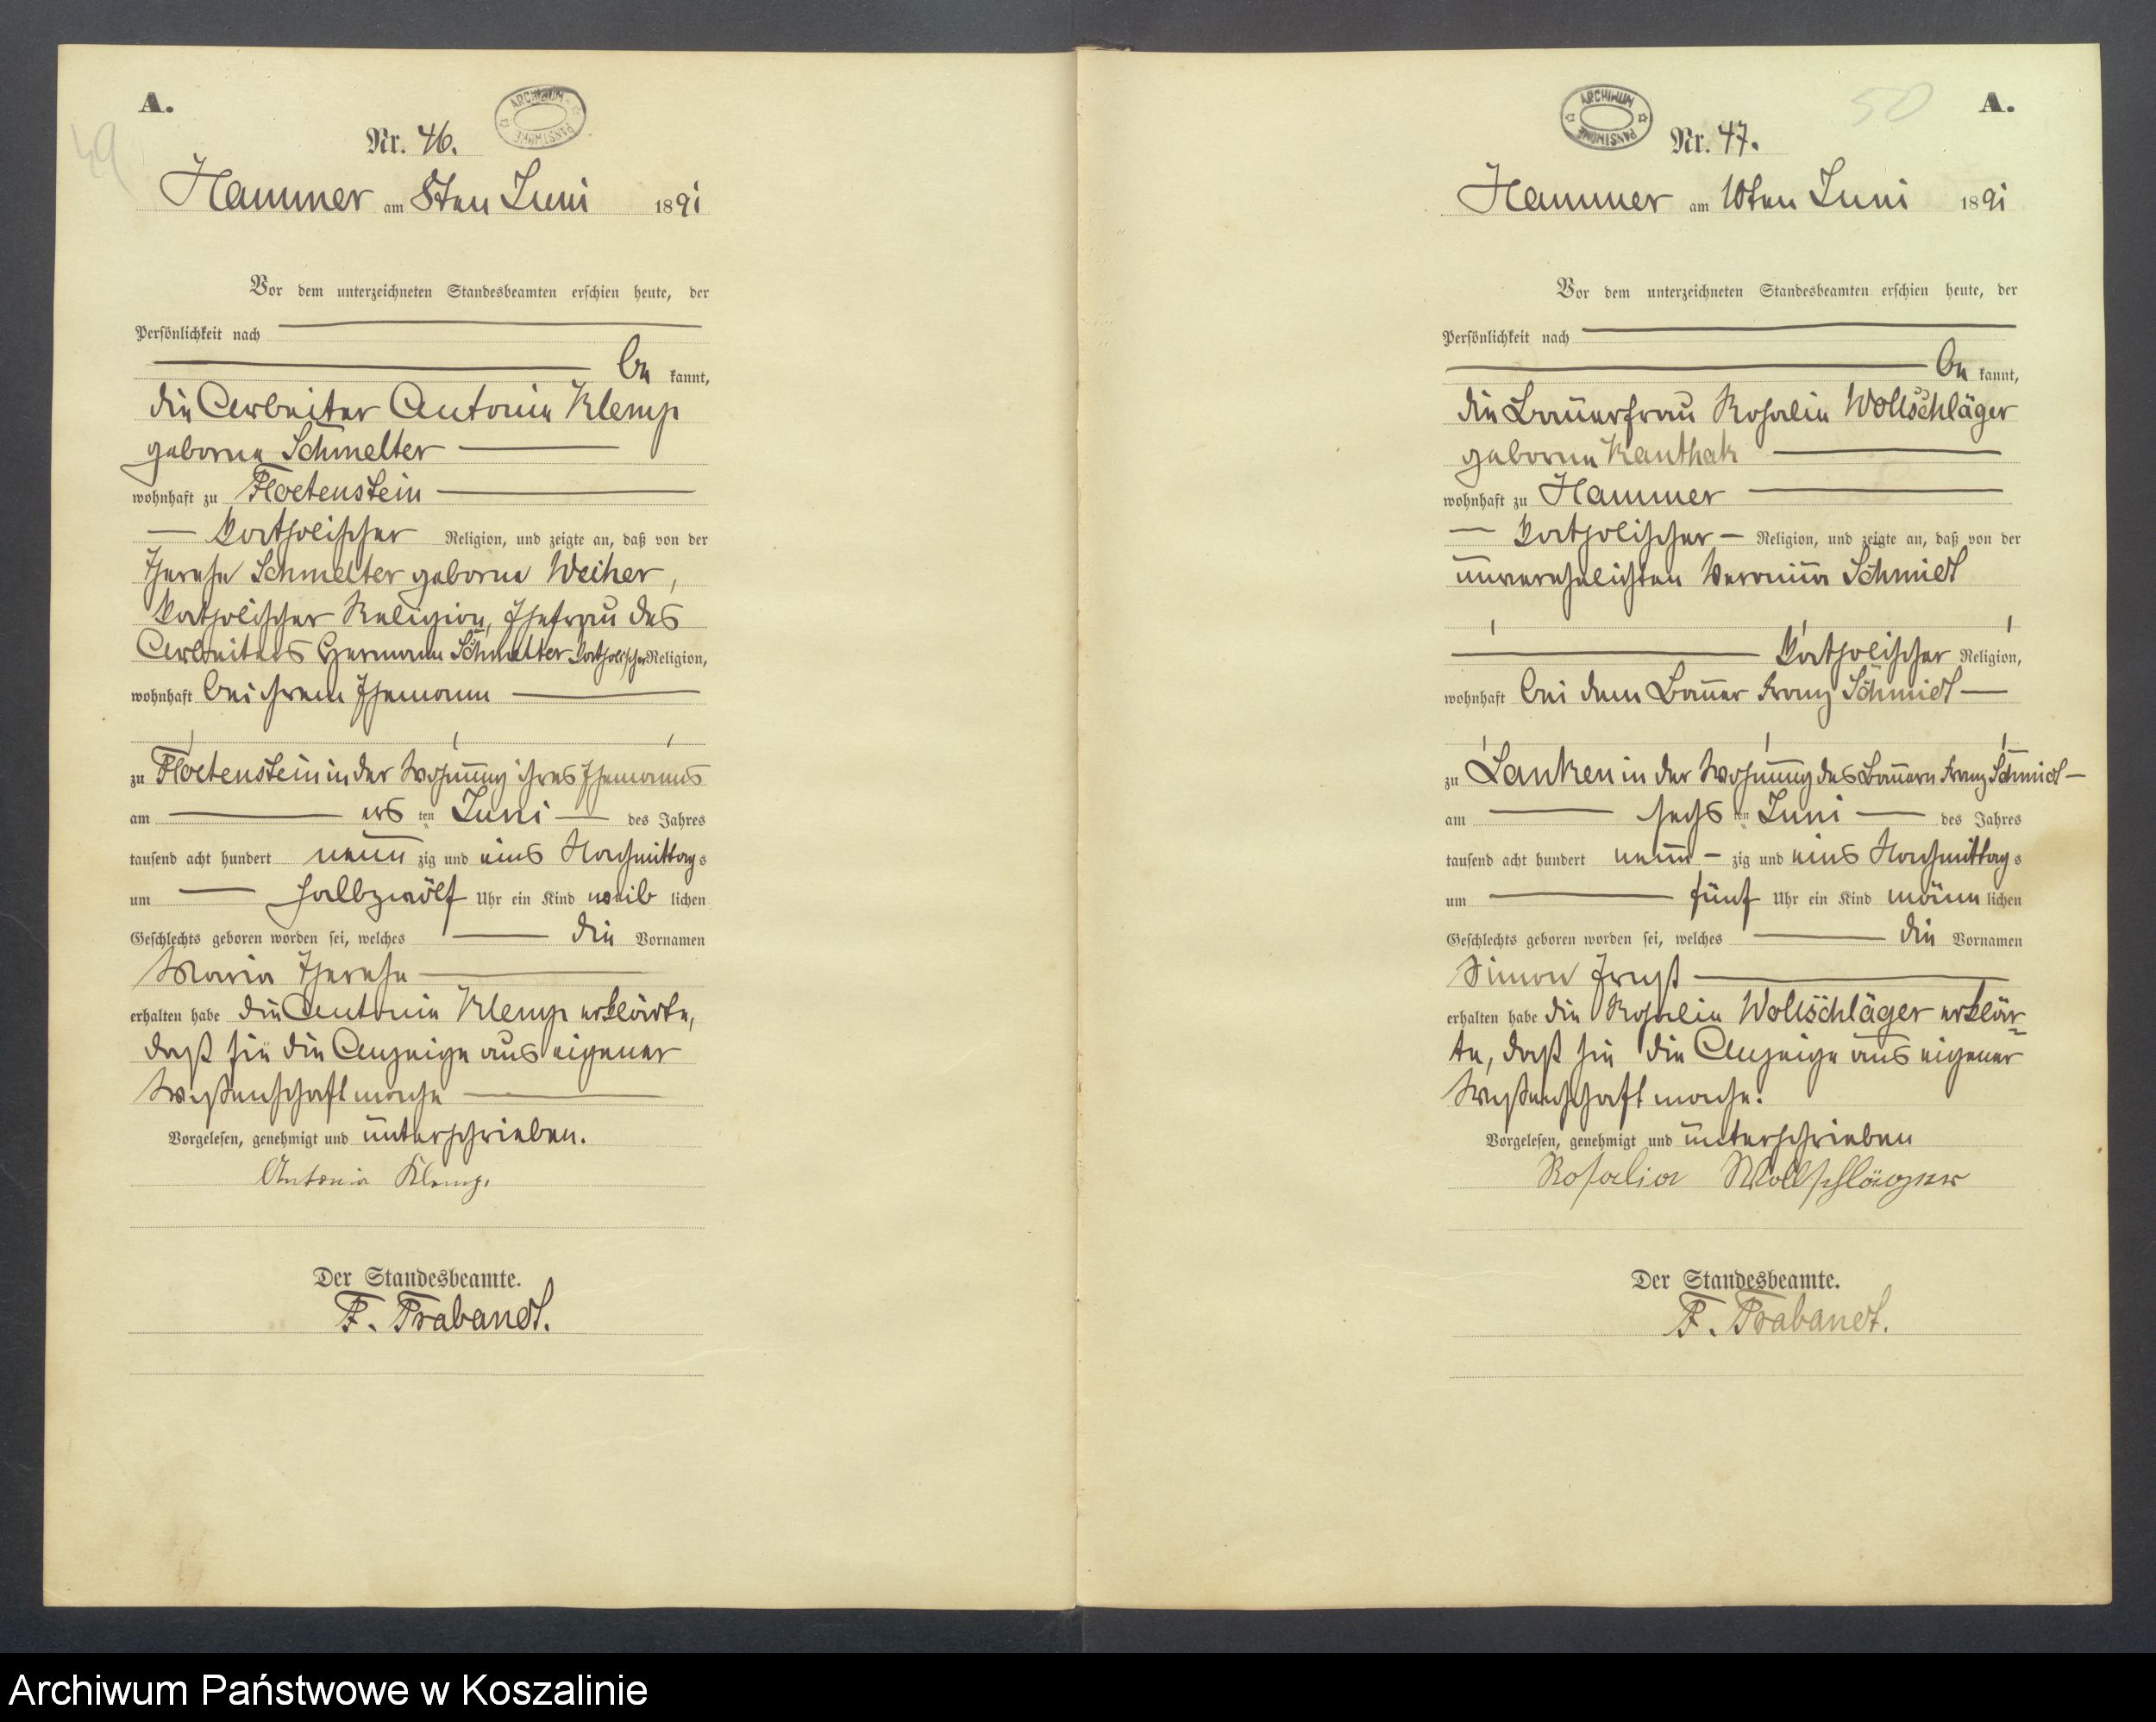 A.
ARCHIWUM PAŃSTWOWE
Nr. 46.
49
Hammer am 8ten Juni 1891
Vor dem unterzeichneten Standesbeamten erschien heute, der
Persönlichkeit nach
be kannt,
die Arbeiter Antonie Klemp
geborne Schmelter
wohnhaft zu Floetenstein
katholischer Religion, und zeigte an, daß von der
Therese Schmelter geborne Weiher,
katholischer Religion, Ehefrau des
Arbeiters Hermann Schmelter katholischer Religion,
wohnhaft bei ihrem Ehemann
zu Floetenstein in der Wohnung ihres Ehemanns
am ers ten Juni des Jahres
tausend acht hundert neun zig und eins Nachmittags
um halbzwölf Uhr ein Kind weib lichen
Geschlechts geboren worden sei, welches die Vornamen
Maria Therese
erhalten habe die Antonie Klemp erklärte,
daß sie die Anzeige aus eigener
Wißenschaft mache
Vorgelesen, genehmigt und unterschrieben.
Antonia Klemp.
Der Standesbeamte.
F. Trabandt.
ARCHIWUM PAŃSTWOWE
50
A.
Nr. 47.
Hammer am 10ten Juni 1891
Vor dem unterzeichneten Standesbeamten erschien heute, der
Persönlichkeit nach
be kannt,
die Bauerfrau Rosalie Wollschläger
geborne Kanthak
wohnhaft zu Hammer
katholischer Religion, und zeigte an, daß von der
unverehelichten Schmidt
katholischer Religion,
wohnhaft bei dem Bauer Franz Schmidt
zu Lanken in der Wohnung des Bauern Franz Schmidt
am sechs ten Juni des Jahres
tausend acht hundert neun zig und eins Nachmittags
um fünf Uhr ein Kind männ lichen
Geschlechts geboren worden sei, welches die Vornamen
Simon
erhalten habe die Rosalie Wollschläger erklär-
te, daß sie die Anzeige aus eigener
Wißenschaft mache.
Vorgelesen, genehmigt und unterschrieben
Rosalia Wollschläger
Der Standesbeamte.
F. Trabandt.
Archiwum Państwowe w Koszalinie